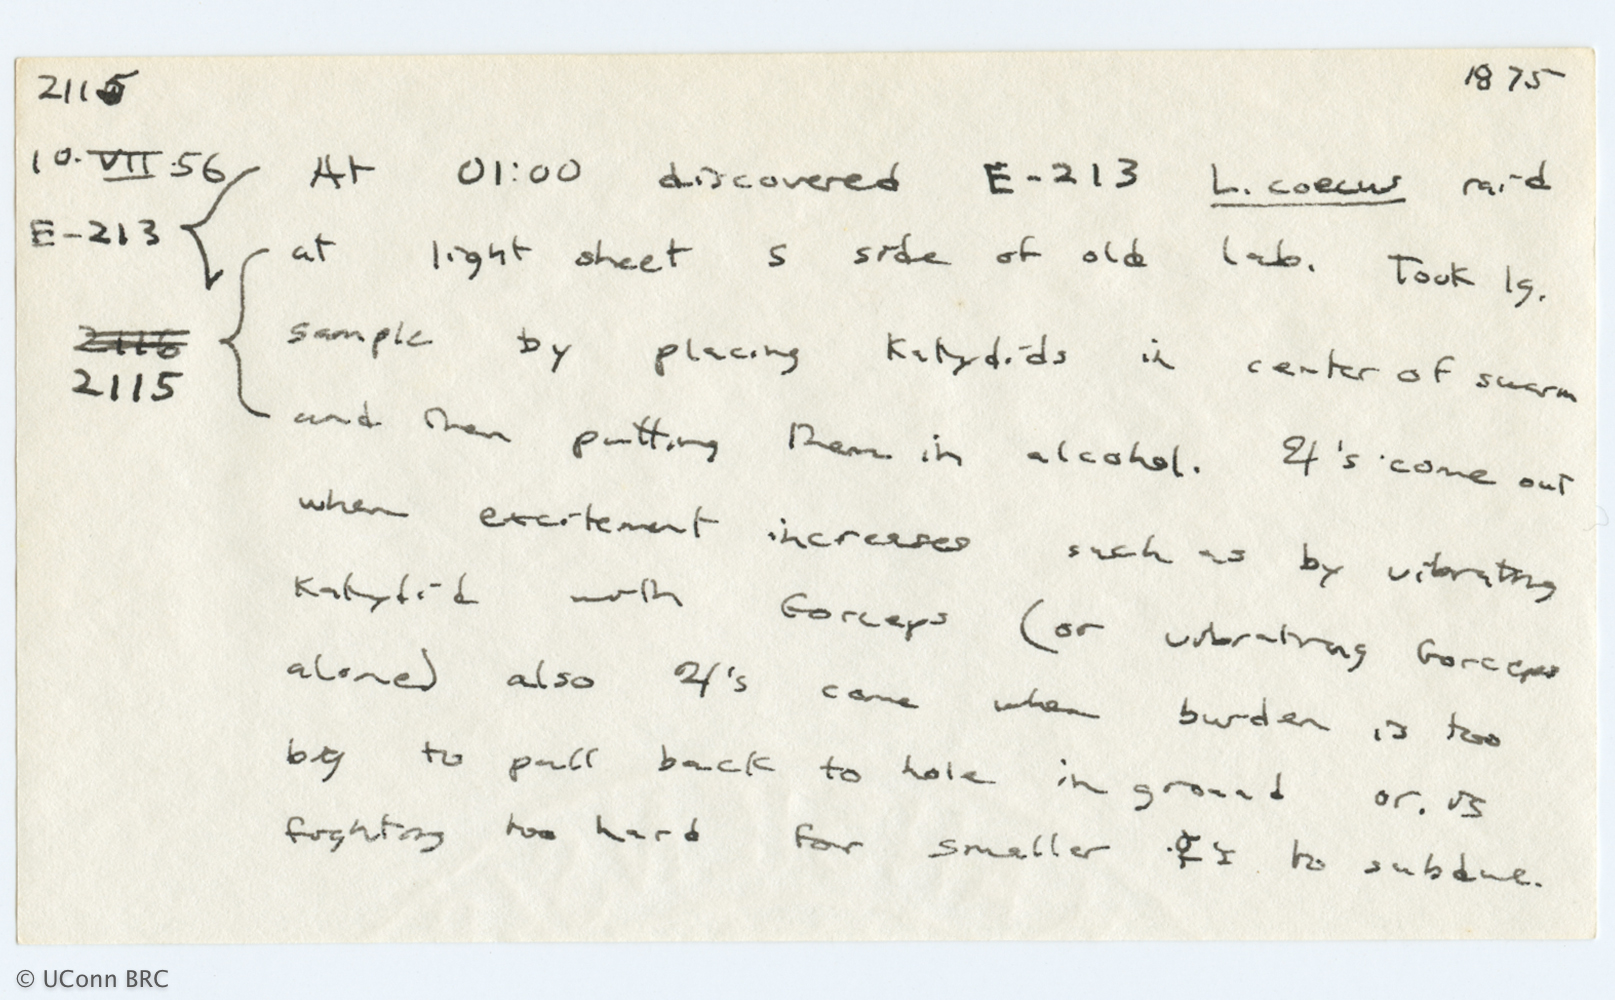 2115
1875
10.VII.56
E-213
2116
2115
At 01:00 discovered E-213 L. coecus raid
at light sheet S side of old lab. Took lg.
sample by placing Katydids in center of swarm
and then putting them in alcohol. ♃'s come out
when excitement increases such as by vibrating
Katydid with forceps (or vibrating forceps
alone) also ♃'s come when burden is too
big to pull back to hole in ground or is
fighting too hard for smaller to subdue.
© UConn BRC